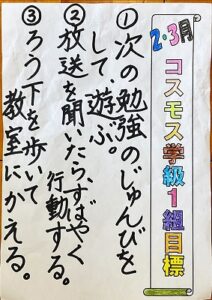 2・3月
コスモス学級1組目標
①次の勉強のじゅんびを
して、遊ぶ。
②放送を聞いたら、すばやく
行動する。
③ろう下を歩いて
教室にかえる。